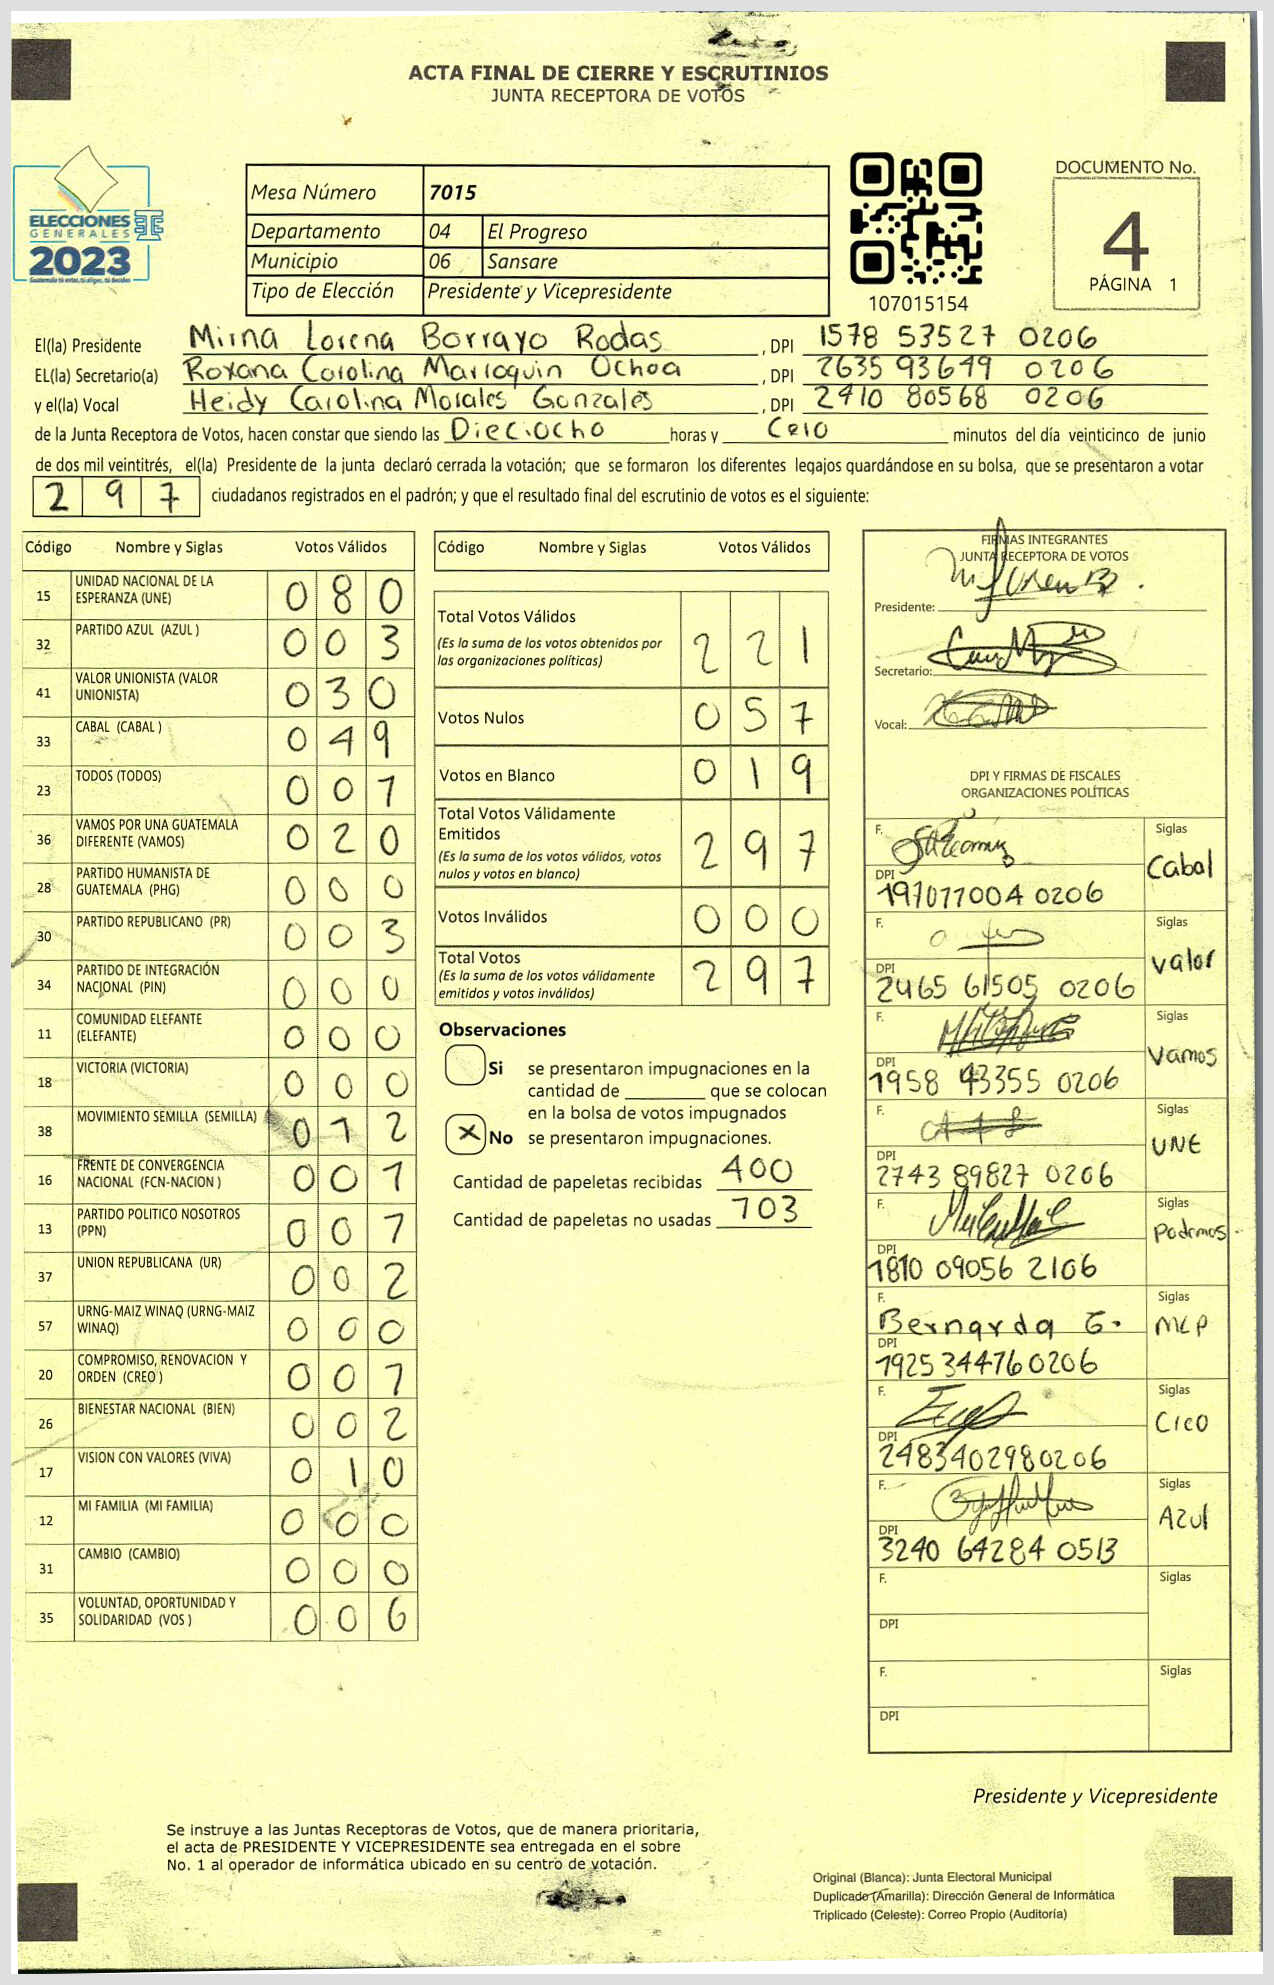 ACTA FINAL DE CIERRE Y ESCRUTINIOS
JUNTA RECEPTORA DE VOTOS
ELECCIONES
GENERALES
2023
Mesa Número 7015
Departamento 04 El Progreso
Municipio 06 Sansare
Tipo de Elección Presidente y Vicepresidente
107015154
DOCUMENTO No.
4
PÁGINA 1
El(la) Presidente Mirna Lorena Borrayo Rodas, DPI 1578 53527 0206
EL(la) Secretario(a) Roxana Carolina Marroquin Ochoa, DPI 2635 93649 0206
y el(la) Vocal Heidy Carolina Morales Gonzales, DPI 2410 80568 0206
de la Junta Receptora de Votos, hacen constar que siendo las Dieciocho horas y Cero minutos del día veinticinco de junio
de dos mil veintitrés, el(la) Presidente de la junta declaró cerrada la votación; que se formaron los diferentes legajos guardándose en su bolsa, que se presentaron a votar
297 ciudadanos registrados en el padrón; y que el resultado final del escrutinio de votos es el siguiente:
Código Nombre y Siglas Votos Válidos
15 UNIDAD NACIONAL DE LA ESPERANZA (UNE) 080
32 PARTIDO AZUL (AZUL ) 003
41 VALOR UNIONISTA (VALOR UNIONISTA) 030
33 CABAL (CABAL ) 049
23 TODOS (TODOS) 001
36 VAMOS POR UNA GUATEMALA DIFERENTE (VAMOS) 020
28 PARTIDO HUMANISTA DE GUATEMALA (PHG) 000
30 PARTIDO REPUBLICANO (PR) 003
34 PARTIDO DE INTEGRACIÓN NACIONAL (PIN) 000
11 COMUNIDAD ELEFANTE (ELEFANTE) 000
18 VICTORIA (VICTORIA) 000
38 MOVIMIENTO SEMILLA (SEMILLA) 012
16 FRENTE DE CONVERGENCIA NACIONAL (FCN-NACION ) 001
13 PARTIDO POLITICO NOSOTROS (PPN) 001
37 UNION REPUBLICANA (UR) 002
57 URNG-MAIZ WINAQ (URNG-MAIZ WINAQ) 000
20 COMPROMISO, RENOVACION Y ORDEN (CREO ) 001
26 BIENESTAR NACIONAL (BIEN) 002
17 VISION CON VALORES (VIVA) 010
12 MI FAMILIA (MI FAMILIA) 000
31 CAMBIO (CAMBIO) 000
35 VOLUNTAD, OPORTUNIDAD Y SOLIDARIDAD (VOS ) 006
Código Nombre y Siglas Votos Válidos
Total Votos Válidos 221
(Es la suma de los votos obtenidos por
las organizaciones políticas)
Votos Nulos 057
Votos en Blanco 019
Total Votos Válidamente
Emitidos 297
(Es la suma de los votos válidos, votos
nulos y votos en blanco)
Votos Inválidos 000
Total Votos 297
(Es la suma de los votos válidamente
emitidos y votos inválidos)
Observaciones
Si se presentaron impugnaciones en la
cantidad de ________ que se colocan
en la bolsa de votos impugnados
X No se presentaron impugnaciones.
Cantidad de papeletas recibidas 400
Cantidad de papeletas no usadas 103
FIRMAS INTEGRANTES
JUNTA RECEPTORA DE VOTOS
Presidente:
Secretario:
Vocal:
DPI Y FIRMAS DE FISCALES
ORGANIZACIONES POLÍTICAS
F. Siglas Cabal
DPI 197077004 0206
F. Siglas Valor
DPI 2465 61505 0206
F. Siglas Vamos
DPI 1958 43355 0206
F. Siglas UNE
DPI 2743 89827 0206
F. Siglas Podemos
DPI 1810 09056 2106
F. Bernarda G. Siglas MLP
DPI 1925 34476 0206
F. Siglas Cico
DPI 2483402980206
F. Siglas Azul
DPI 3240 64284 0513
F. Siglas
DPI
F. Siglas
DPI
Presidente y Vicepresidente
Se instruye a las Juntas Receptoras de Votos, que de manera prioritaria,
el acta de PRESIDENTE Y VICEPRESIDENTE sea entregada en el sobre
No. 1 al operador de informática ubicado en su centro de votación.
Original (Blanca): Junta Electoral Municipal
Duplicado (Amarilla): Dirección General de Informática
Triplicado (Celeste): Correo Propio (Auditoría)